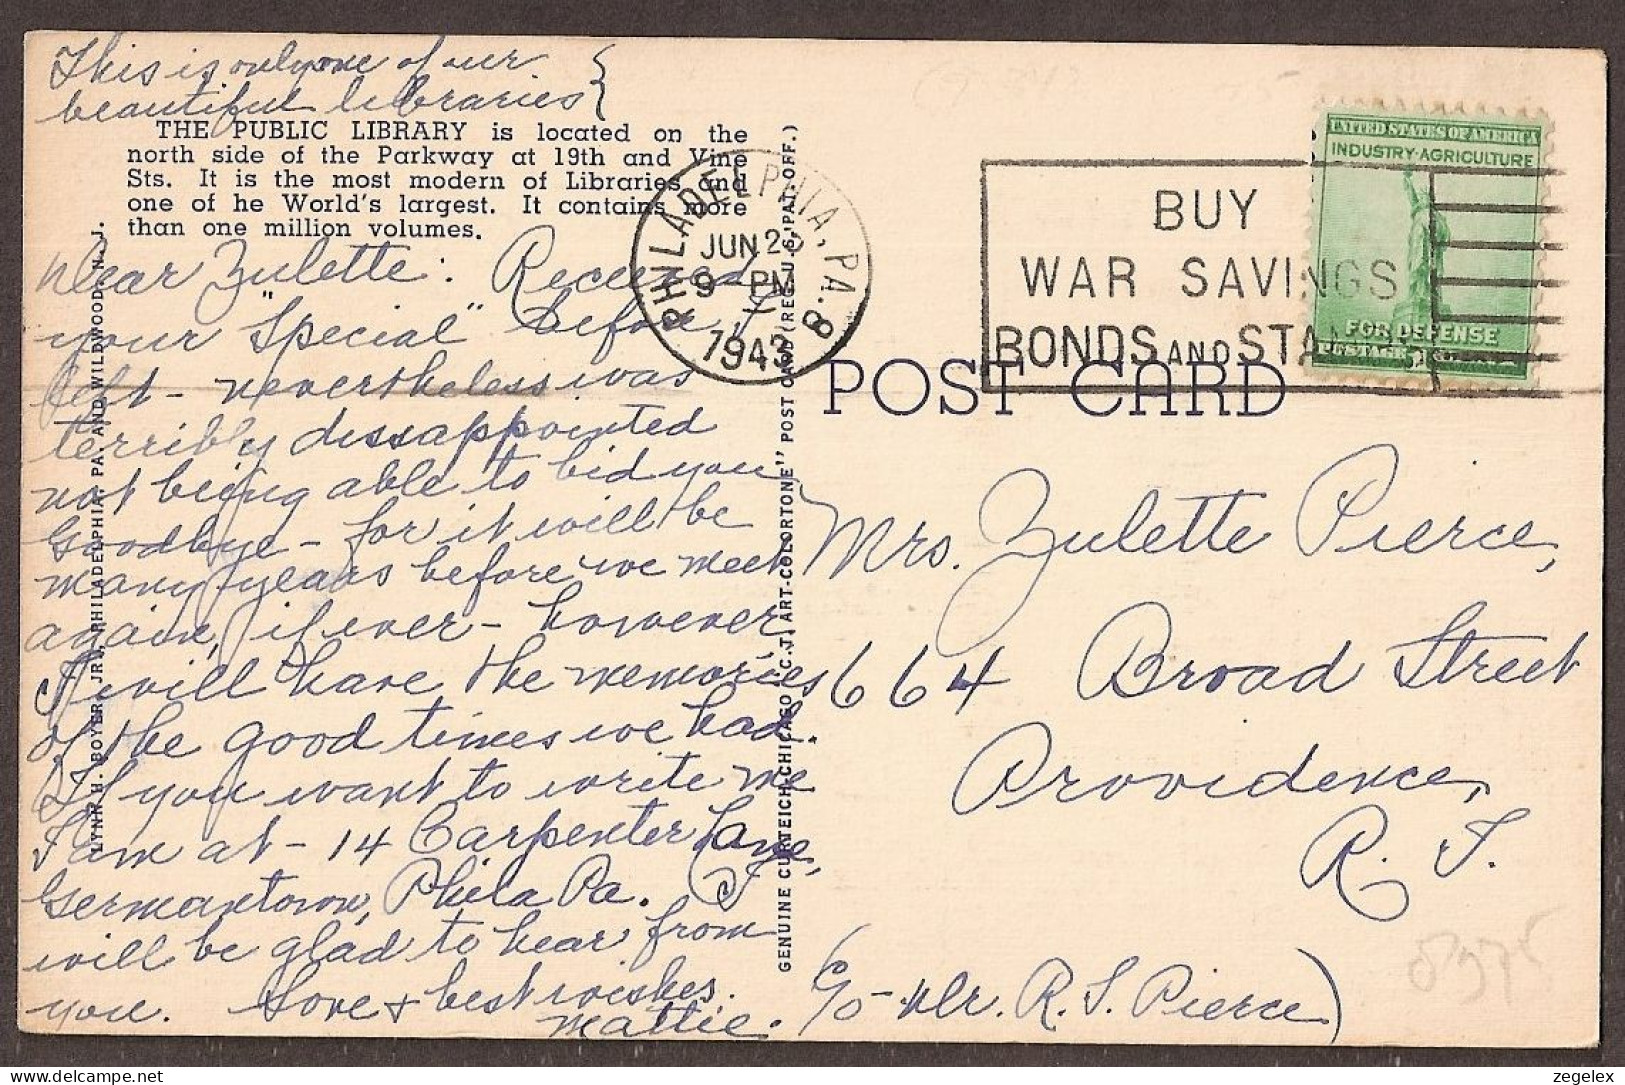 This is only one of our
beautiful libraries
THE PUBLIC LIBRARY is located on the
north side of the Parkway at 19th and Vine
Sts. It is the most modern of Libraries and
one of he World's largest. It contains more
than one million volumes.
Dear Zulette: Received
your "Special" before I
left - nevertheless was
terribly dissappointed
not being able to bid you
Goodbye - for it will be
many years before we meet
again, if ever - however
I will have the memories
of the good times we had.
If you want to write me
I am at - 14 Carpenter Lane,
Germantown, Phila Pa. I
will be glad to hear from
you. Love & best wishes.
Mattie.
LYNN H. BOYER, JR., PHILADELPHIA, PA. AND WILDWOOD, N. J.
GENUINE CURTEICH-CHICAGO "C.T. ART-COLORTONE" POST CARD (REG. U.S. PAT. OFF.)
PHILADELPHIA, PA. 8
JUN
9 PM
1943
BUY
WAR SAVINGS
BONDS AND STAMPS
UNITED STATES OF AMERICA
INDUSTRY-AGRICULTURE
FOR DEFENSE
POSTAGE
POST CARD
Mrs. Zulette Pierce,
664 Broad Street
Providence,
R. I.
(c/o - Mr. R. S. Pierce)
zegelex